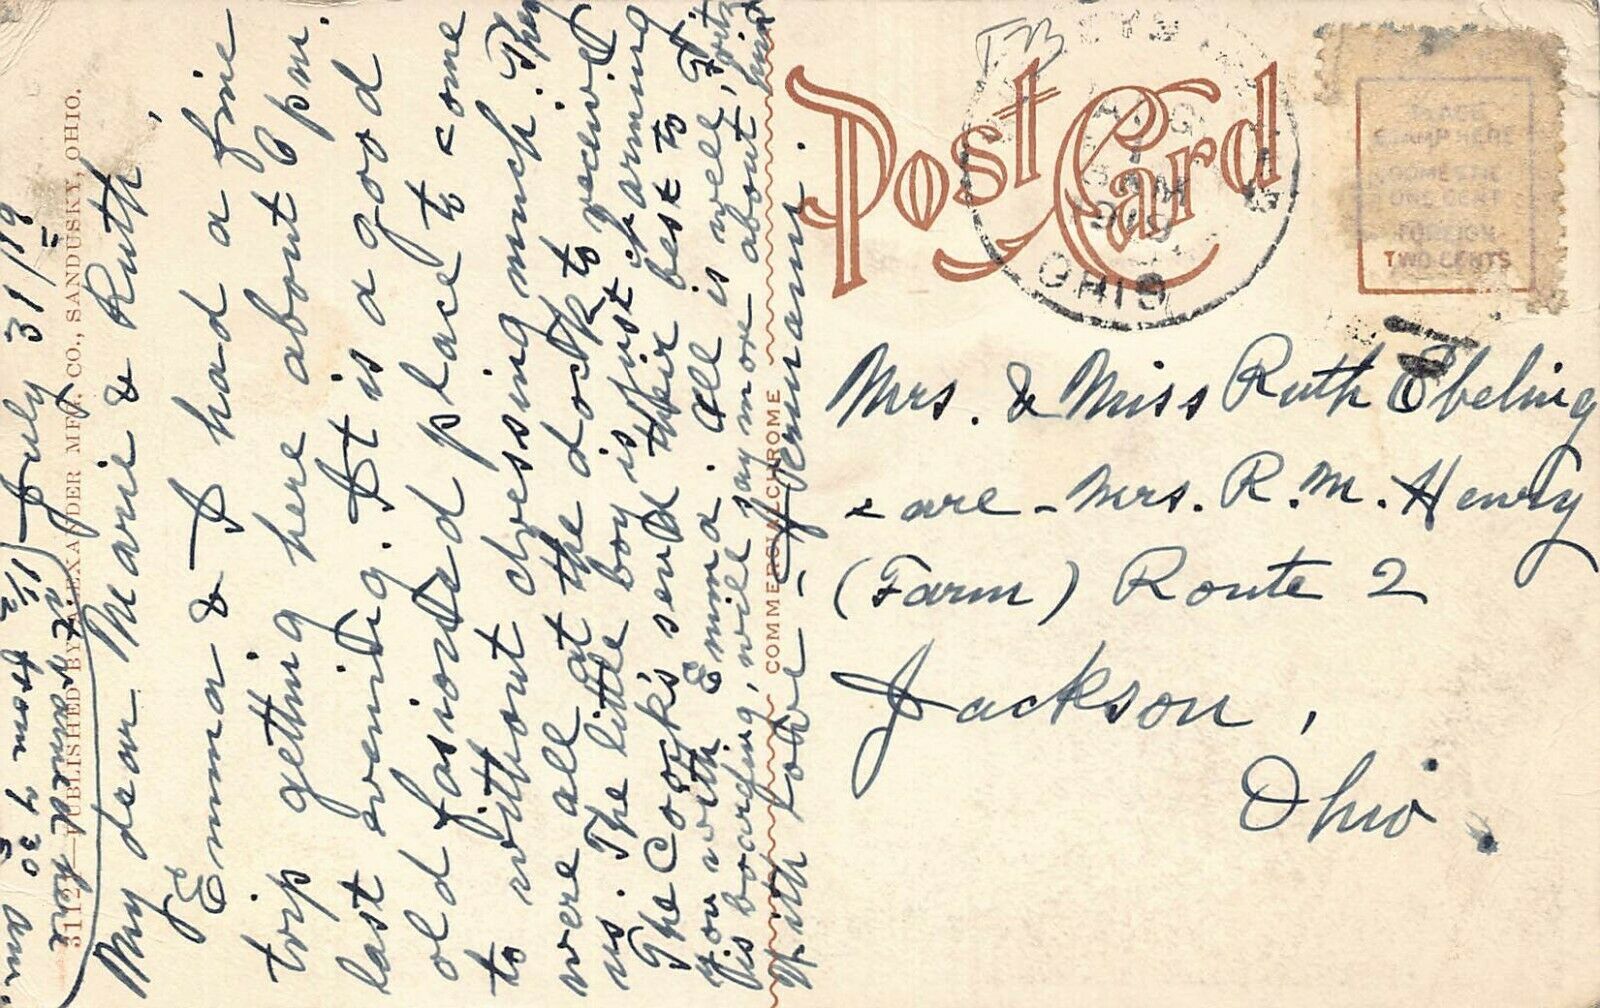 July 31/19
My dear Marie & Ruth,
Emma & I had a fine
trip getting here about 6 pm.
last evening. It is a good
old fasioned place to come
to without dressing much. They
were all at the dock to receive
us. The little boy is just charming
The Cook's send their best to
You with Emma. All is well,
is boarfing, will say more about
With love - Hermann.
31127—PUBLISHED BY ALEXANDER MFG. CO., SANDUSKY, OHIO.
COMMERCIALCHROME
Post Card
AUG
1
AM
1919
OHIO
PLACE
STAMP HERE
DOMESTIC
ONE CENT
FOREIGN
TWO CENTS
Mrs. & Miss Ruth Ebeling
care - Mrs. R. M. Henry
(Farm) Route 2
Jackson,
Ohio.